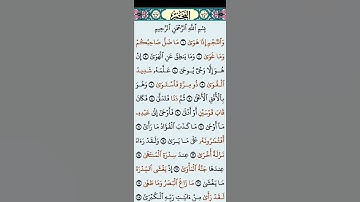 النجم
بِسْمِ ٱللَّهِ ٱلرَّحْمَٰنِ ٱلرَّحِيمِ
وَٱلنَّجْمِ إِذَا هَوَىٰ ۝ مَا ضَلَّ صَاحِبُكُمْ
وَمَا غَوَىٰ ۝ وَمَا يَنطِقُ عَنِ ٱلْهَوَىٰ ۝ إِنْ
هُوَ إِلَّا وَحْىٌ يُوحَىٰ ۝ عَلَّمَهُۥ شَدِيدُ
ٱلْقُوَىٰ ۝ ذُو مِرَّةٍ فَٱسْتَوَىٰ ۝ وَهُوَ
بِٱلْأُفُقِ ٱلْأَعْلَىٰ ۝ ثُمَّ دَنَا فَتَدَلَّىٰ ۝ فَكَانَ
قَابَ قَوْسَيْنِ أَوْ أَدْنَىٰ ۝ فَأَوْحَىٰٓ إِلَىٰ عَبْدِهِۦ
مَآ أَوْحَىٰ ۝ مَا كَذَبَ ٱلْفُؤَادُ مَا رَأَىٰٓ ۝
أَفَتُمَٰرُونَهُۥ عَلَىٰ مَا يَرَىٰ ۝ وَلَقَدْ رَءَاهُ
نَزْلَةً أُخْرَىٰ ۝ عِندَ سِدْرَةِ ٱلْمُنتَهَىٰ ۝
عِندَهَا جَنَّةُ ٱلْمَأْوَىٰٓ ۝ إِذْ يَغْشَى ٱلسِّدْرَةَ
مَا يَغْشَىٰ ۝ مَا زَاغَ ٱلْبَصَرُ وَمَا طَغَىٰ ۝
لَقَدْ رَأَىٰ مِنْ ءَايَٰتِ رَبِّهِ ٱلْكُبْرَىٰٓ ۝